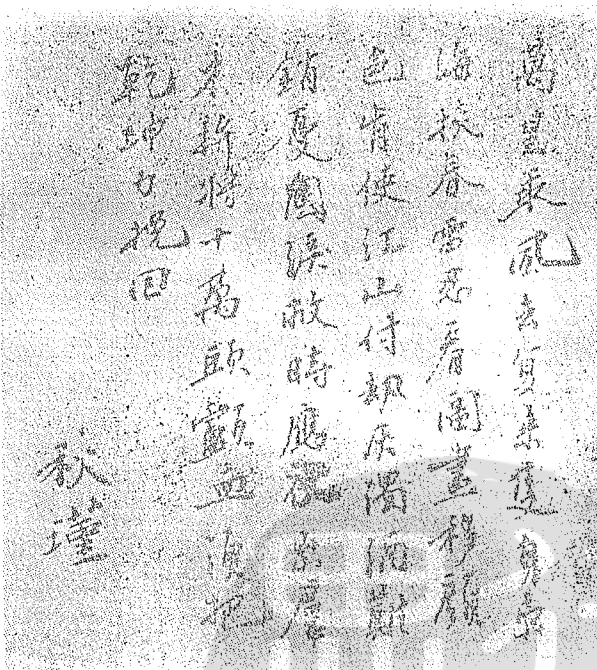 萬里乘風去复来隻身東
海挾春雷忍看圖畫移顏
色肯使江山付劫灰濁酒難
銷憂國淚救時應
才拚將十萬頭顱血須把
乾坤力挽回
秋瑾